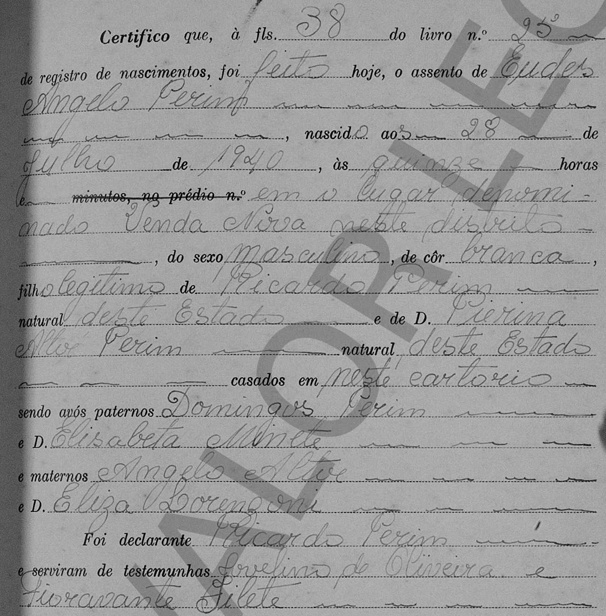 Certifico que, à fls. 38 do livro n.º 25
de registro de nascimentos, foi feito hoje, o assento de Eudes
Angelo Perim
, nascido aos 28 de
Julho de 1940, às quinze horas
e minutos, no prédio n.º em o lugar denomi-
nado Venda Nova neste distrito
, do sexo masculino, de côr branca,
filho legitimo de Ricardo Perim
natural deste Estado e de D. Pierina
Altoé Perim natural deste Estado
casados em neste cartorio
sendo avós paternos Domingos Perim
e D. Elisabeta Minete
e maternos Angelo Altoé
e D. Eliza Lorenzoni
Foi declarante Ricardo Perim
e serviram de testemunhas Jovelino de Oliveira e
Fioravante Filete
VALOR LEG